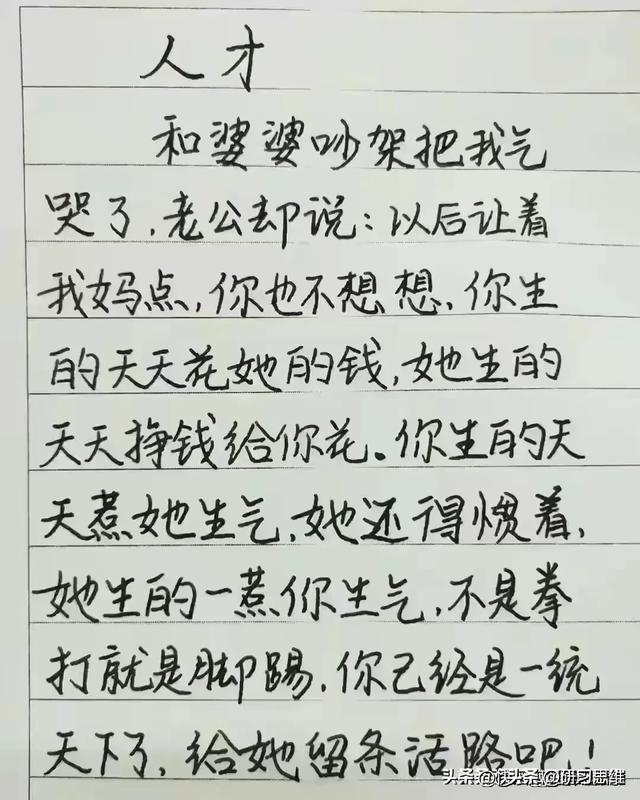 人才
和婆婆吵架把我气
哭了,老公却说:以后让着
我妈点,你也不想想,你生
的天天花她的钱,她生的
天天挣钱给你花。你生的天
天惹她生气,她还得惯着,
她生的一惹你生气,不是拳
打就是脚踢,你已经是一统
天下了,给她留条活路吧!
头条@研习思维